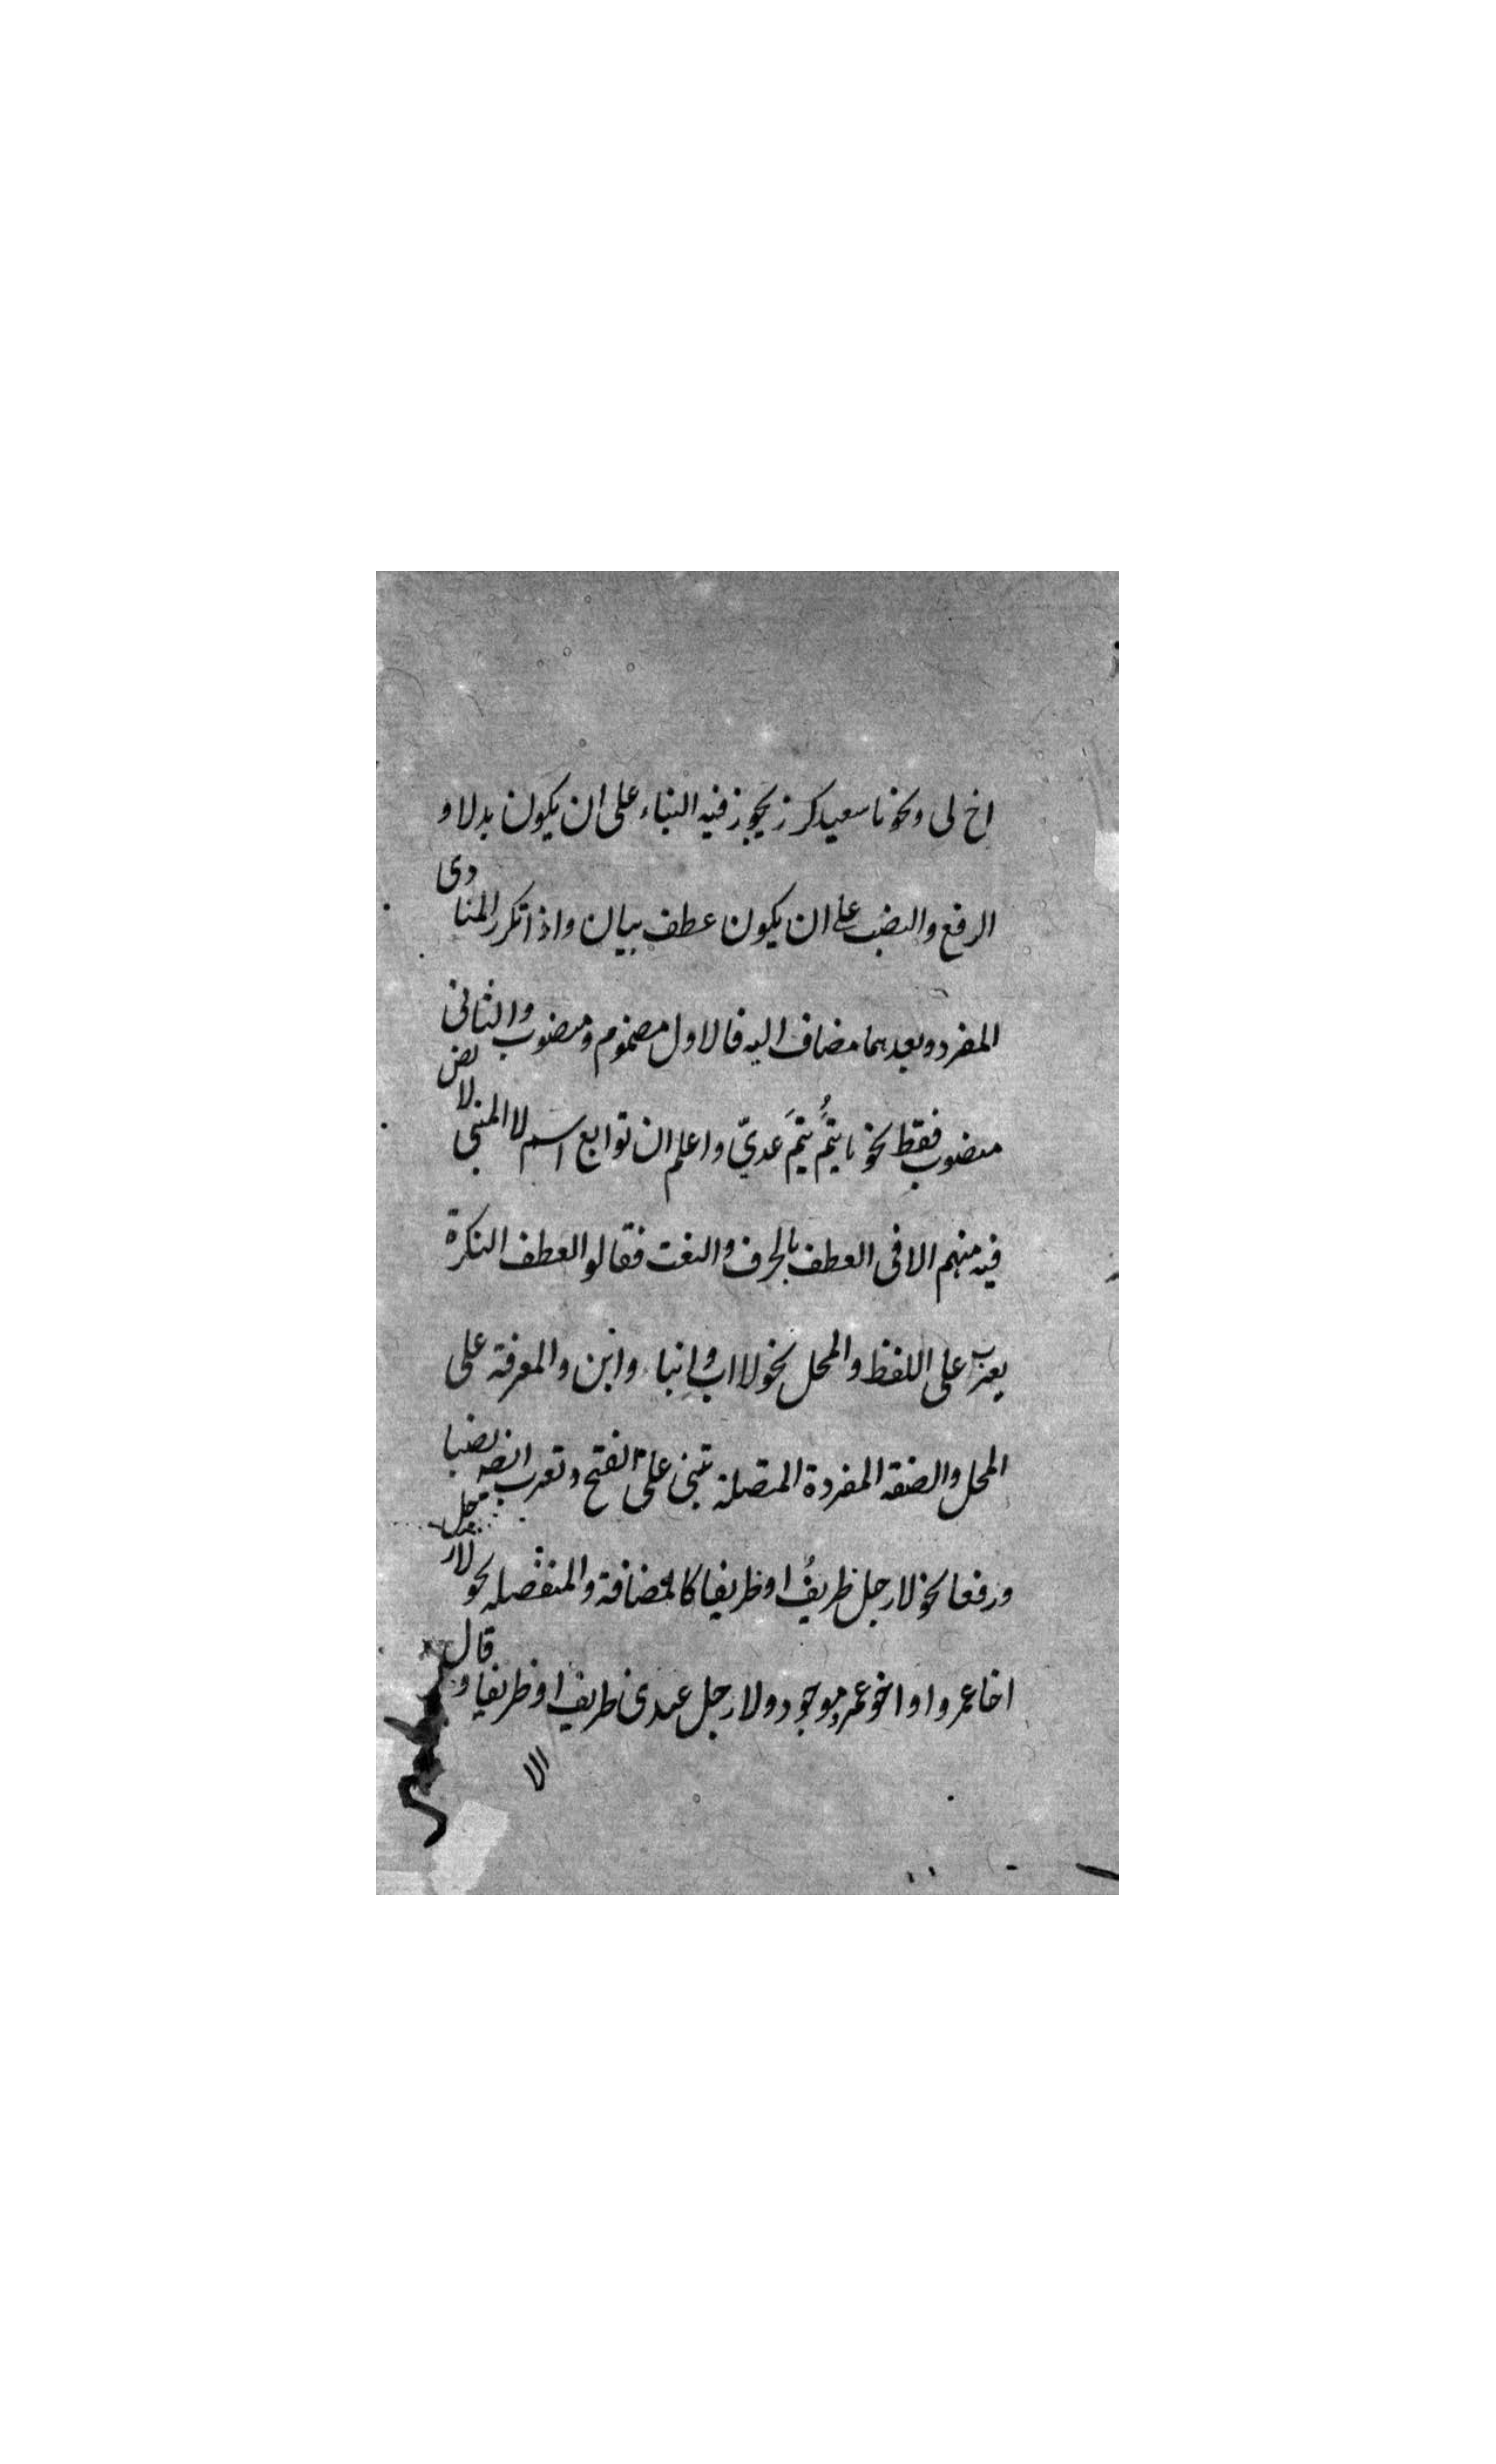 اخ لى ونحو يا سعيد كرز يجوز فيه البناء على ان يكون بدلا و
الرفع والنصب على ان يكون عطف بيان واذا تكرر المنادى
المفرد وبعدهما مضاف اليه فالاول مضموم ومنصوب والثانى
منصوب فقط نحو يا تيمُ تيمَ عدىّ واعلم ان توابع اسم لا المبنى لا نص
فيه منهم الا فى العطف بالحرف والنعت فقالوا العطف النكرة
يعرب على اللفظ والمحل نحو لا اب وابنا وابن والمعرفة على
المحل والصفة المفردة المتصلة تبنى على الفتح وتعرب ايضا نصبا
ورفعا نحو لا رجل ظريفُ او ظريفا كالمضافة والمنفصلة نحو لا رجل
اخا عمرو او اخو عمرو موجود ولا رجل عندى ظريف او ظريفا وقال
الا